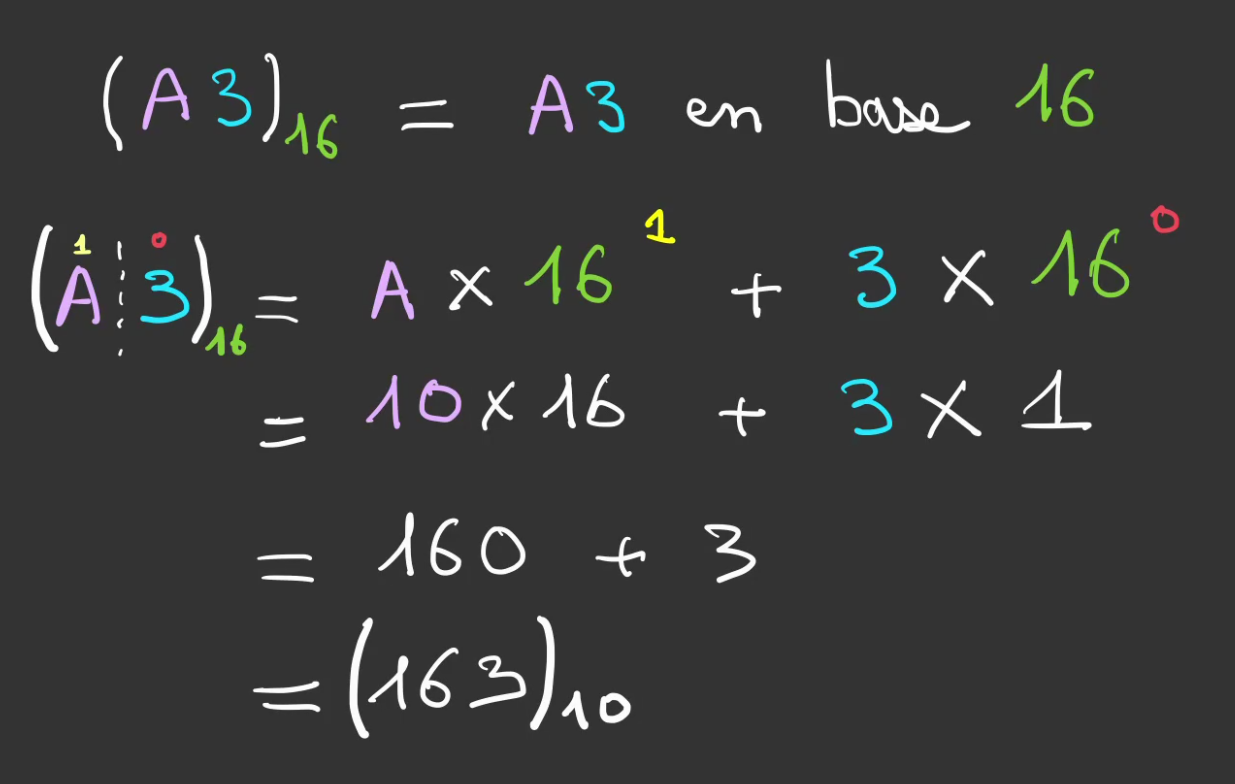 (A3)₁₆ = A3 en base 16
(A¹ ¦ 3⁰)₁₆ = A × 16¹ + 3 × 16⁰
= 10 × 16 + 3 × 1
= 160 + 3
= (163)₁₀